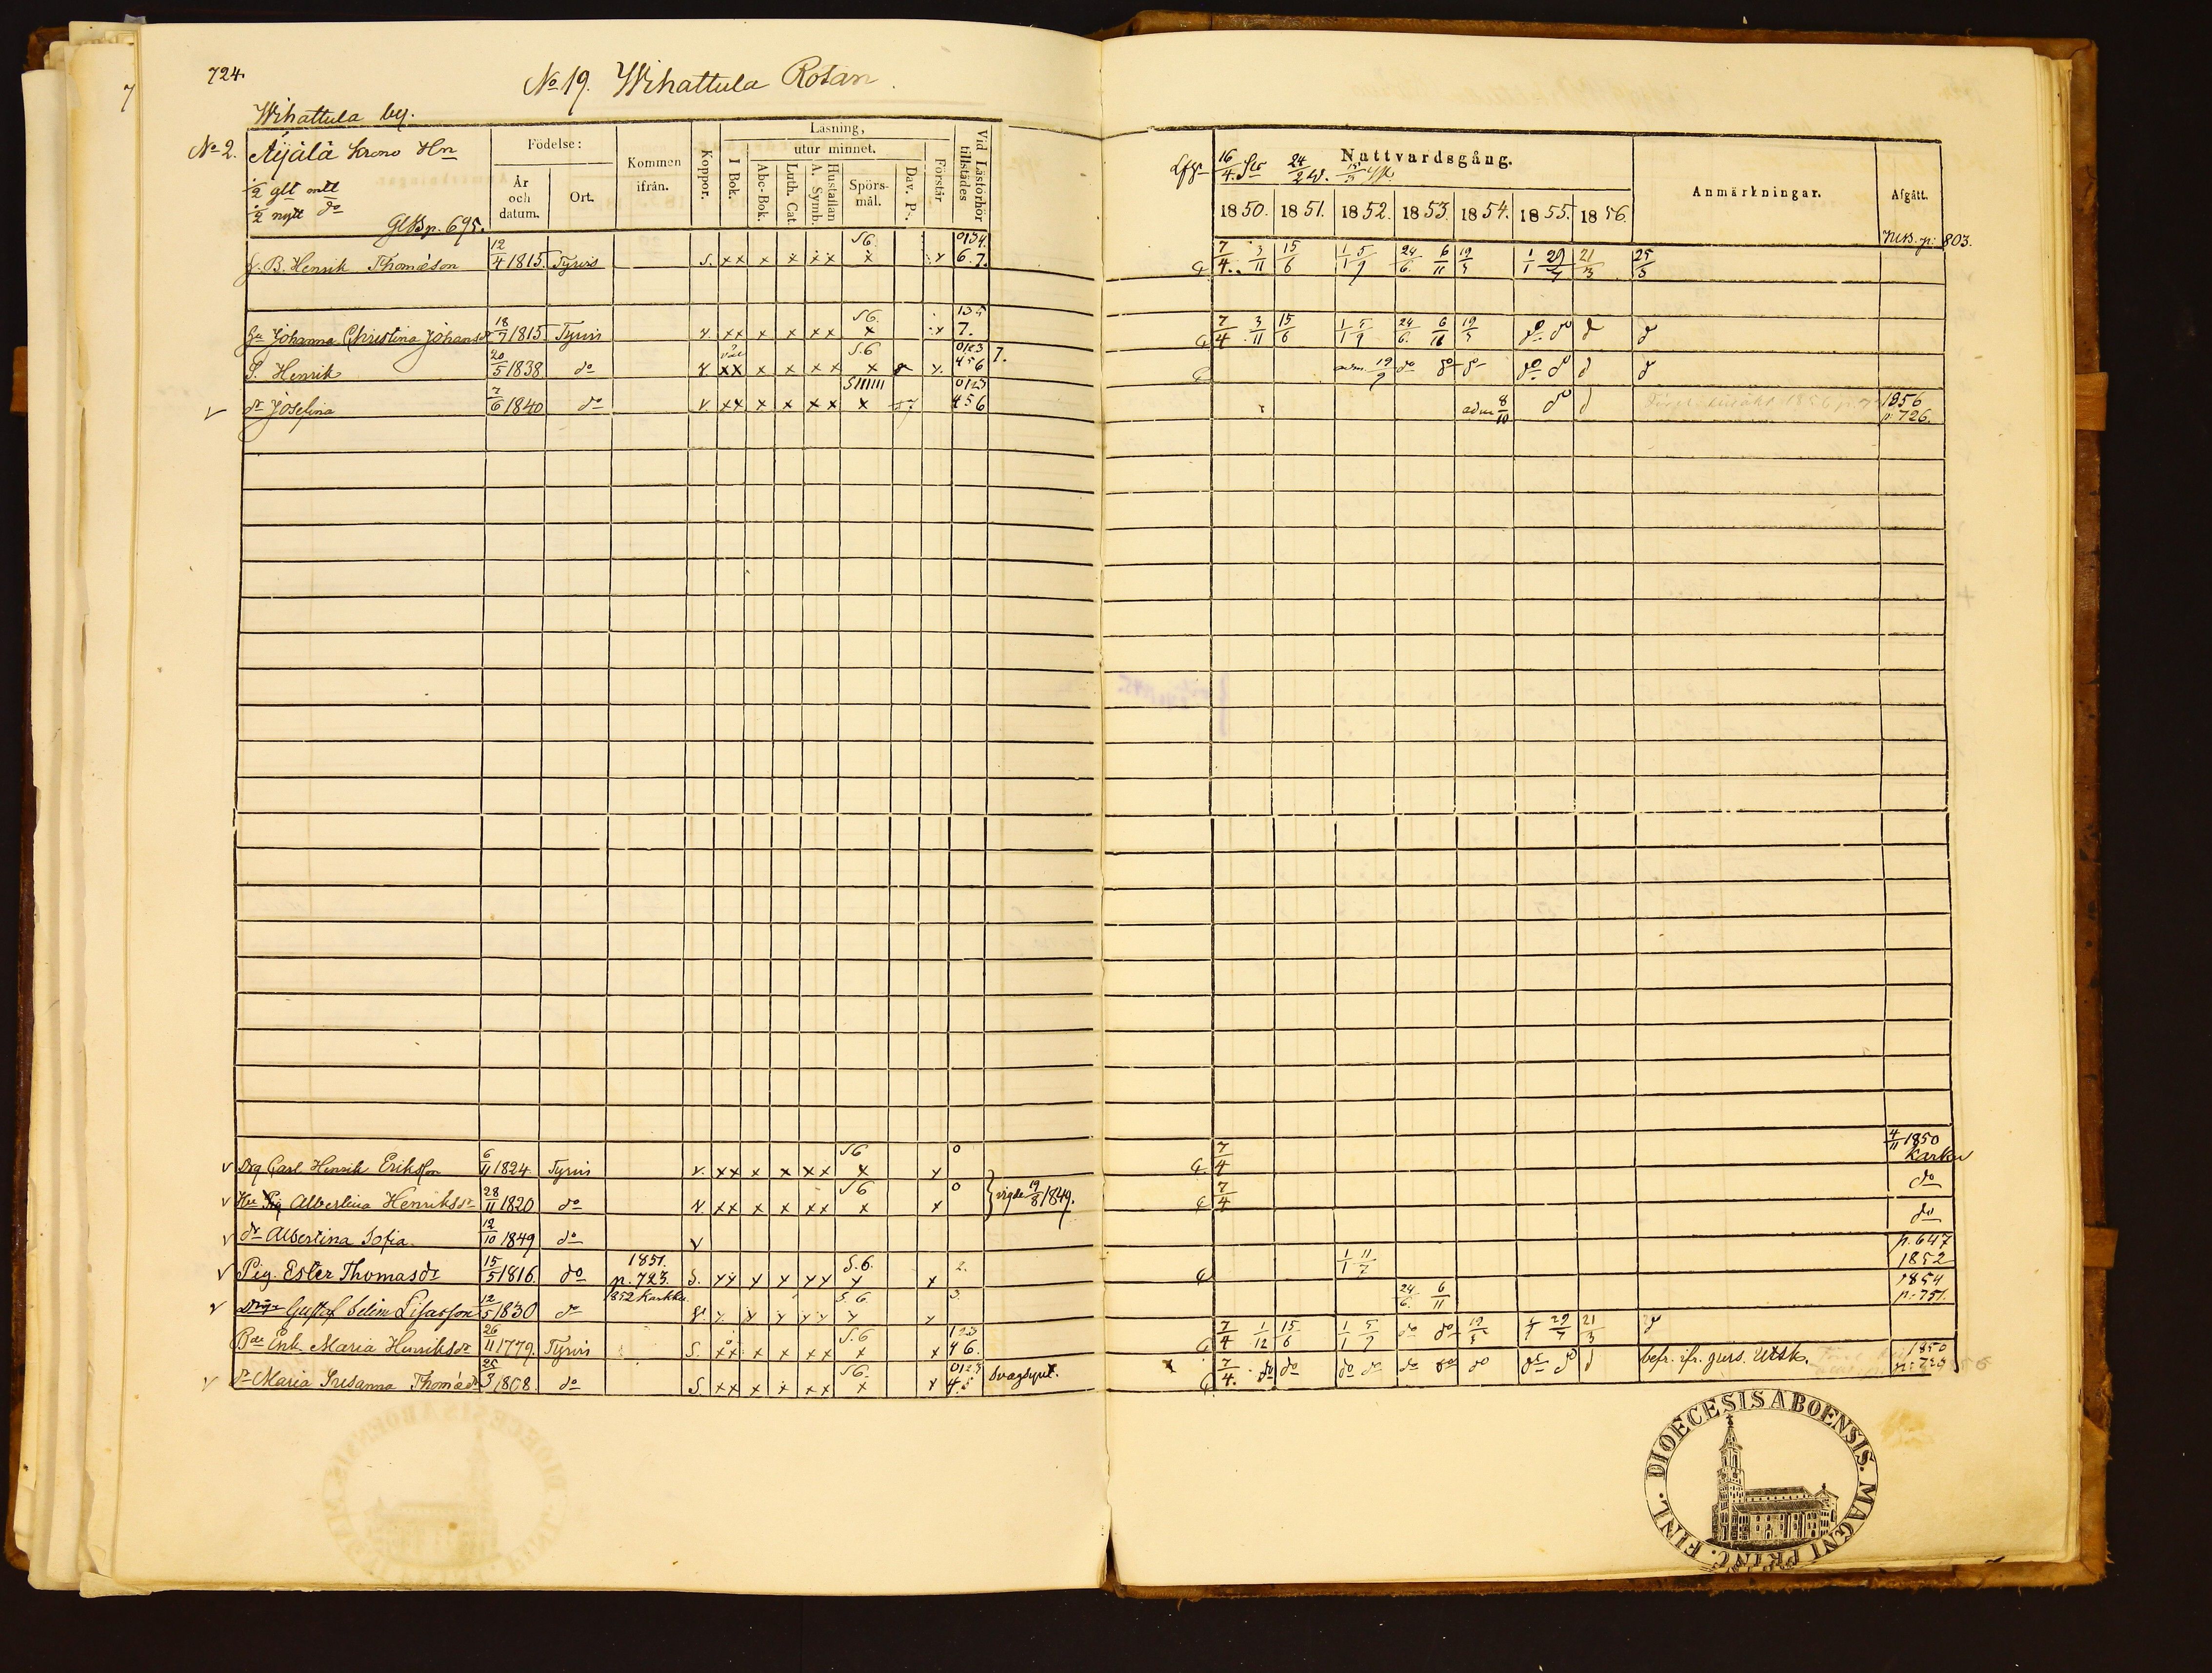 724.
No 19. Wihattula Rotan.
Wihattula by.
No 2. Äijälä Krono Hn
1/2 glt mtl
1/2 nytt do
GlB p. 695.
Födelse:
År och datum.
Ort.
Kommen ifrån.
Koppor.
Läsning,
I Bok.
utur minnet.
Abc-Bok.
Luth. Cat.
Hustaflan A. Symb.
Spörsmål.
Dav. Ps.
Förstår
Vid Läsförhör tillstädes
Nattvardsgång.
16/4 24/2
1850. 1851. 1852. 1853. 1854. 1855. 1856.
Anmärkningar.
Afgått.
NKB. p: 803.
B. Henrik Thomæson 12/4 1815. Tyrvis S. xx x x xx S6. x x 0134. 6.7. 7/4 3/11 15/6 1/1 5/9 24/6 6/11 19/5 1/1 29/7 21/3 25/3
Johanna Christina Johansdr 18/7 1815 Tyrvis v. xx x x xx S6. x x 135 7. 7/4 3/11 15/6 1/1 5/9 24/6 6/11 19/5 do do d d
S. Henrik 20/5 1838 do v. xx x x xx S.6 x x 0123 456 7. adm. 19/9 do do do do d d d
dr Josefina 7/6 1840 do v. xx x x xx x 0123 456 adm 8/10 do d 1856 p. 726.
Drg Carl Henrik Eriksson 6/11 1824 Tyrvis v. xx x x xx S6 x x 0 7/4 4/11 1850 Karku
Hu Pig Albertina Henriksdr 28/11 1820 do v. xx x x xx S6 x x 0 vigde 19/8 1849. 7/4 do
dr Albertina Sofia. 12/10 1849 do v do
Pig. Ester Thomasdr 15/5 1816. do 1851. p. 723. S. xx x x xx S.6. x x 2. 1/1 11/7 p. 647 1852
Gustaf Selim 12/5 1830 do 1852 Karkku S.6. 3. 24/6. 6/11 1854 p. 751.
Enk. Maria Henriksdr 26/11 1779. Tyrvis S. xx x x xx S.6 x x 123 46. 7/4 1/12 15/6 1/1 5/9 do do 19/5 1/1 29/7 21/3 d
dr Maria Susanna Thomædr 25/3 1808. do S xx x x xx S6. x x 0123 4.5 Svagsynt. 7/4. do do do do do do do do d befr. ifr. pers. Utsk. 1850
DIOECESIS ABOENSIS. MAGNI PRINC. FINL.